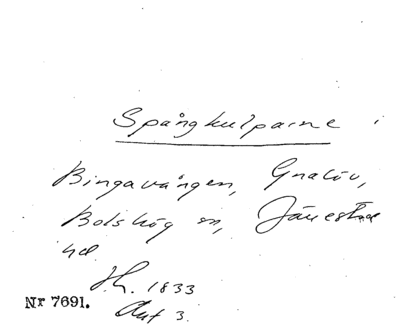 Spångkulparne i
Bingavången, Gnalöv,
Bolshög sn, Järrestad
hd
Sk. 1833
Akt 3.
Nr 7691.